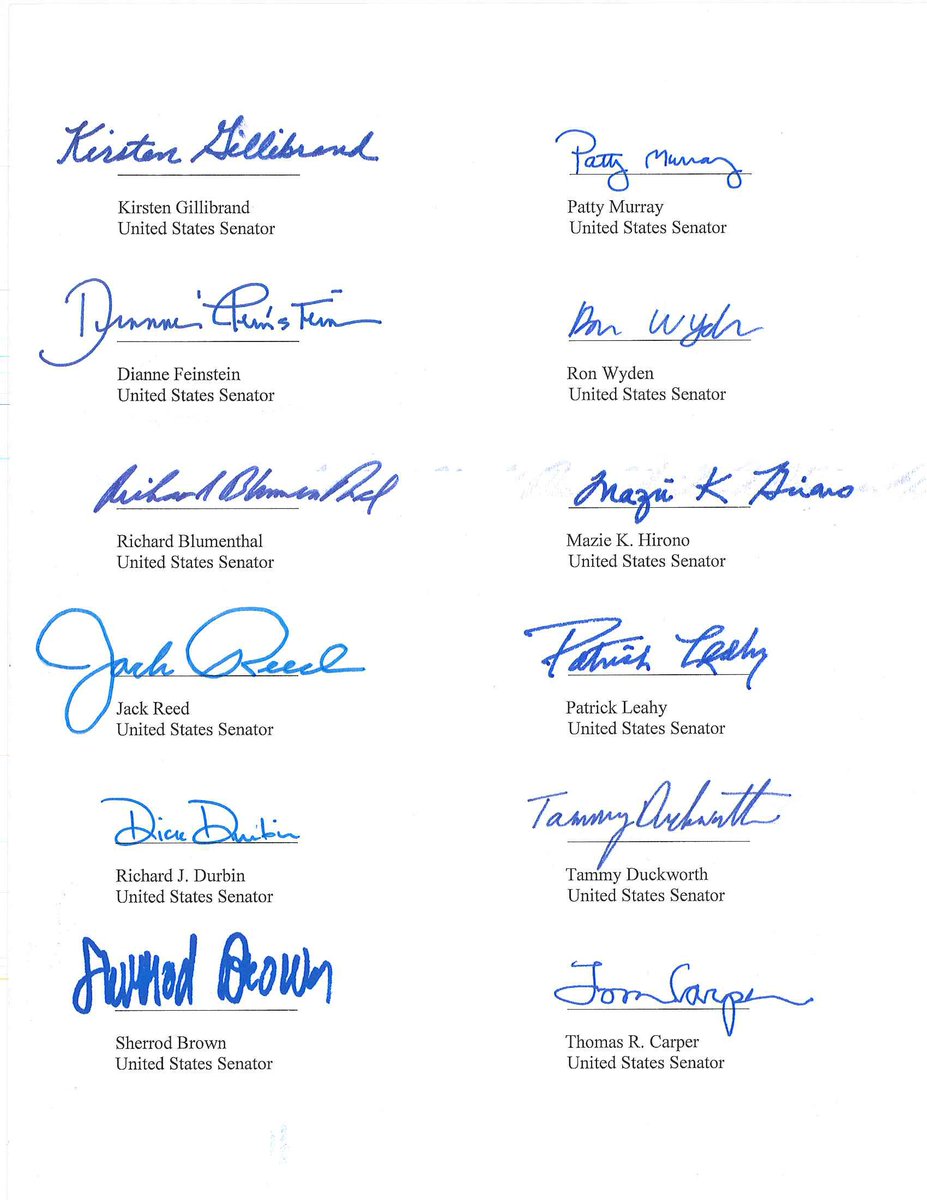 Kirsten Gillibrand
Kirsten Gillibrand
United States Senator
Patty Murray
Patty Murray
United States Senator
Dianne Feinstein
Dianne Feinstein
United States Senator
Ron Wyden
Ron Wyden
United States Senator
Richard Blumenthal
Richard Blumenthal
United States Senator
Mazie K Hirono
Mazie K. Hirono
United States Senator
Jack Reed
Jack Reed
United States Senator
Patrick Leahy
Patrick Leahy
United States Senator
Dick Durbin
Richard J. Durbin
United States Senator
Tammy Duckworth
Tammy Duckworth
United States Senator
Sherrod Brown
Sherrod Brown
United States Senator
Tom Carper
Thomas R. Carper
United States Senator